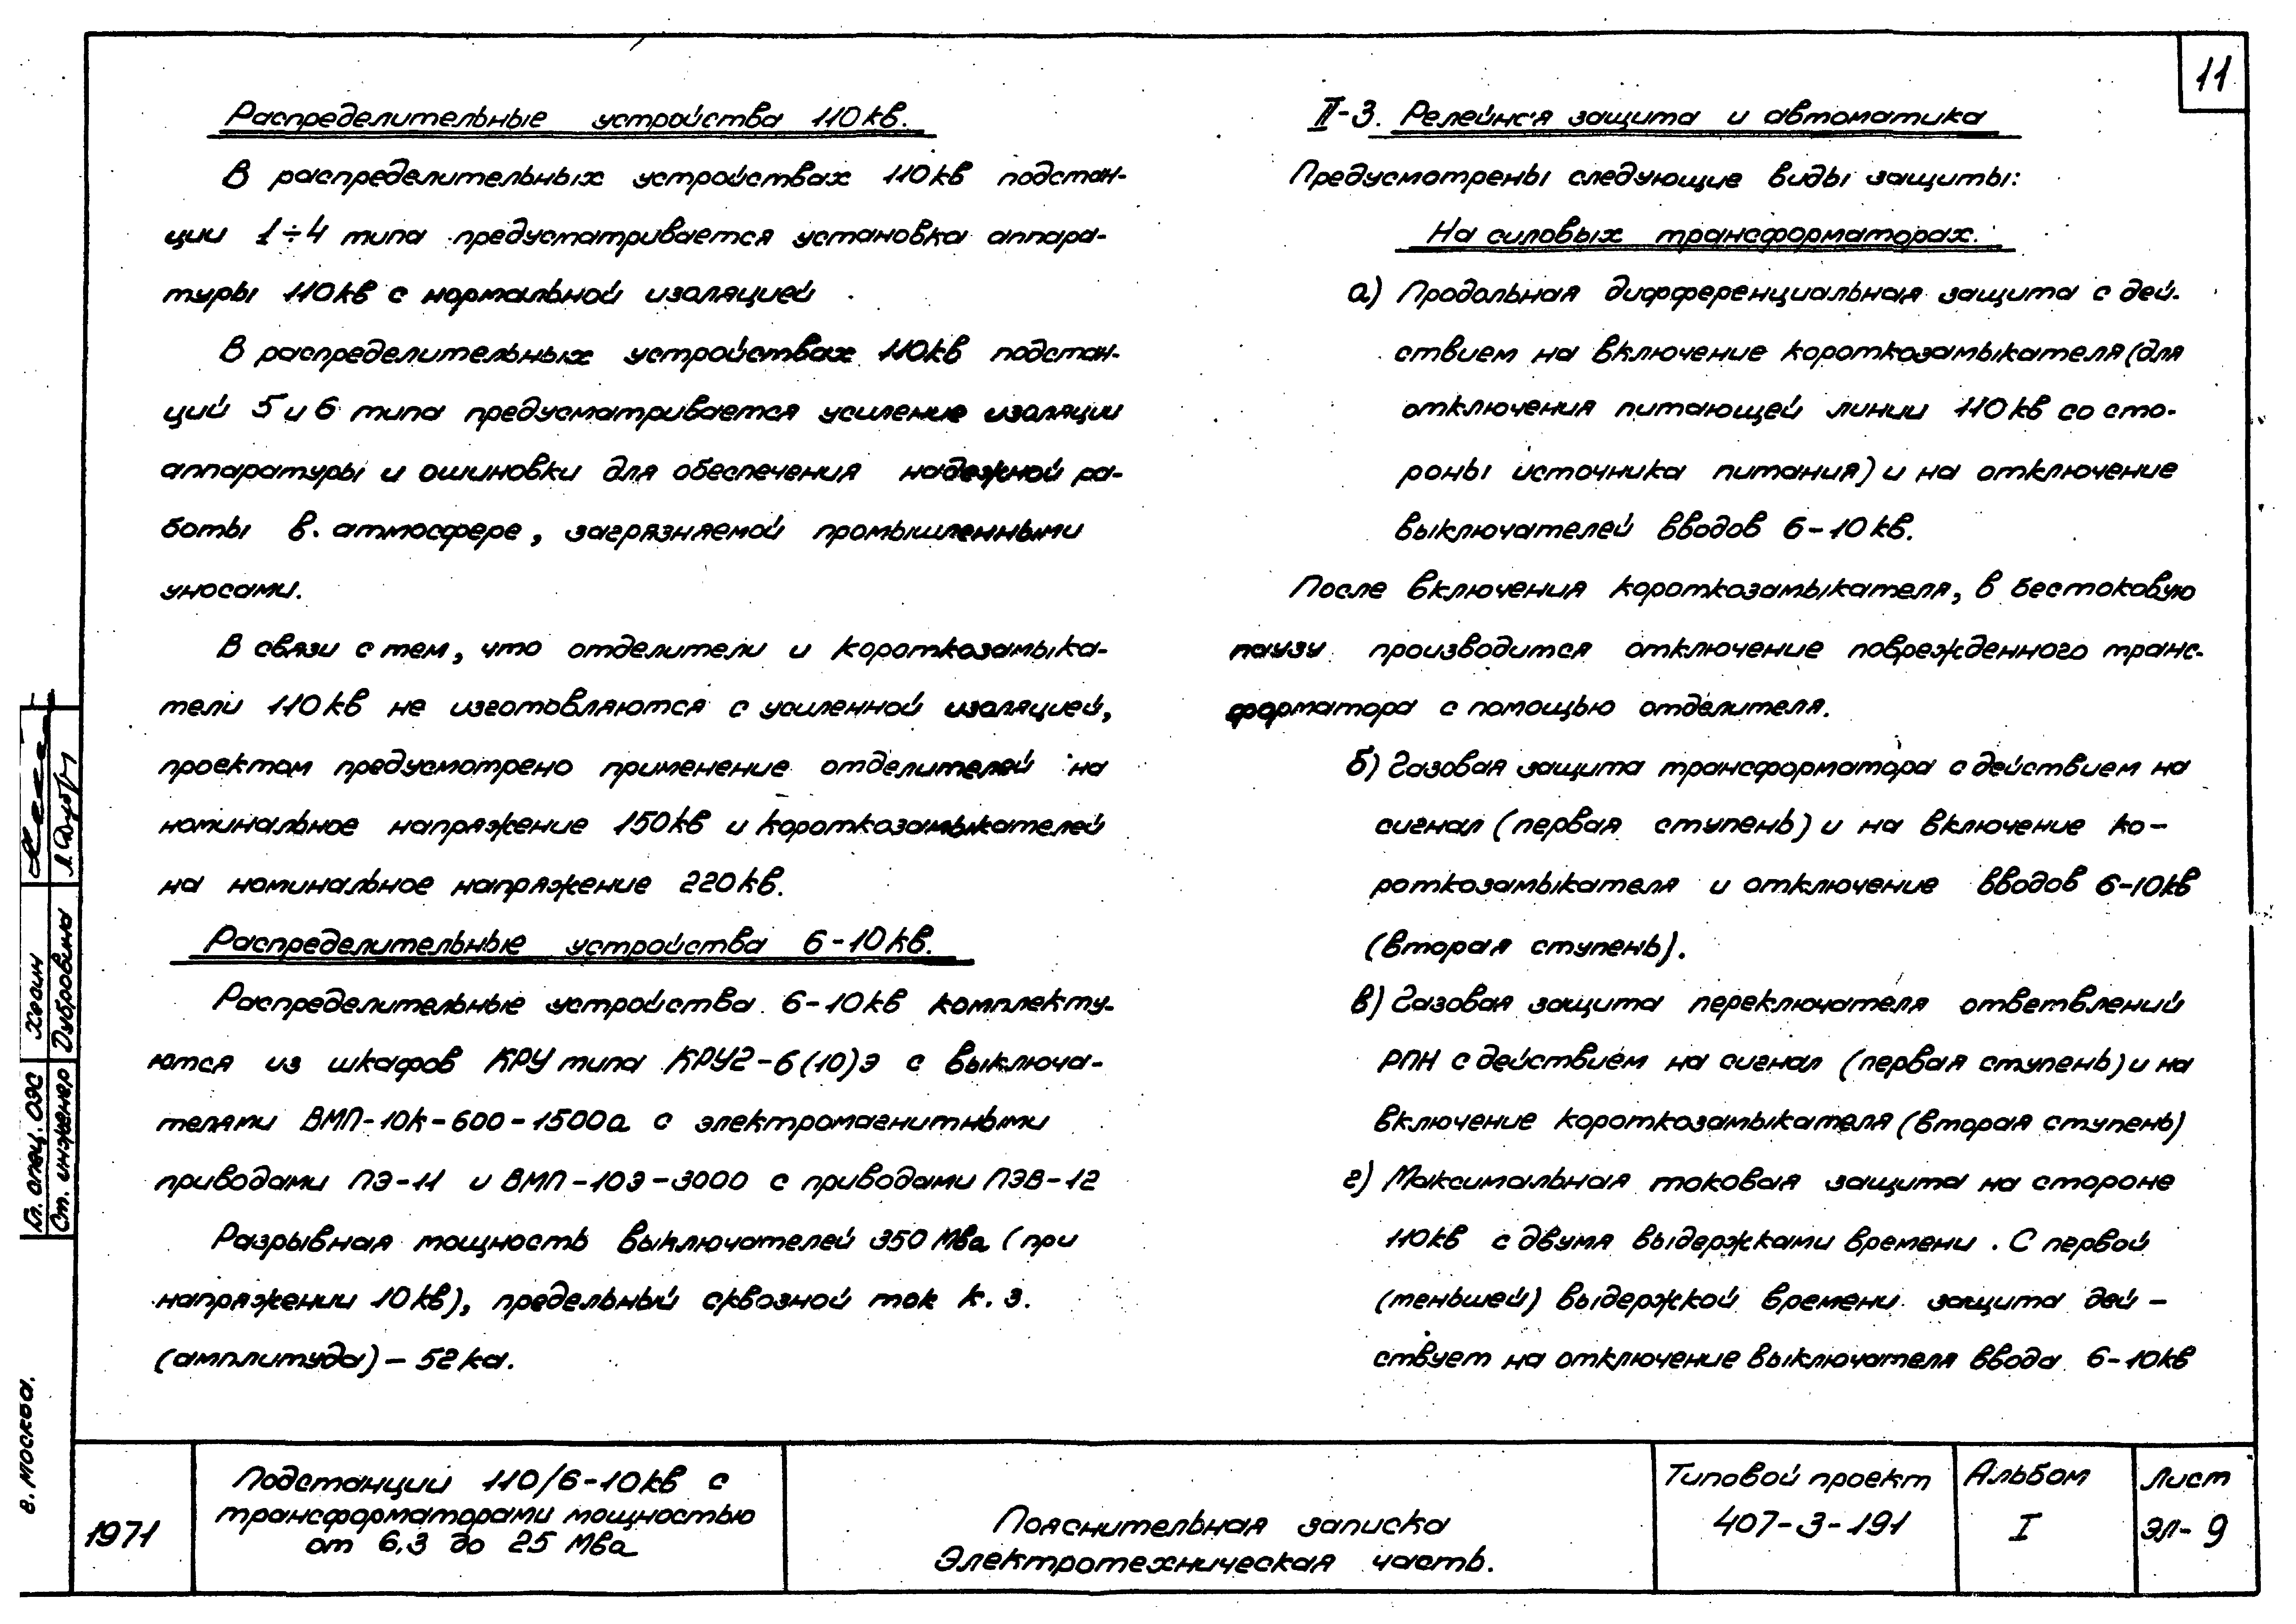 11
Распределительные устройства 110кв.
В распределительных устройствах 110кв подстан-
ции 1÷4 типа предусматривается установка аппара-
туры 110кв с нормальной изоляцией
В распределительных устройствах 110кв подстан-
ций 5 и 6 типа предусматривается усиление изоляции
аппаратуры и ошиновки для обеспечения надежной ра-
боты в. атмосфере, загрязняемой промышленными
уносами.
В связи с тем, что отделители и короткозамыка-
тели 110кв не изготовляются с усиленной изоляцией,
проектом предусмотрено применение отделителей на
номинальное напряжение 150кв и короткозамыкателей
на номинальное напряжение 220кв.
Распределительные устройства 6-10кв.
Распределительные устройства 6-10кв комплекту-
ются из шкафов КРУ типа КРУ2-6(10)Э с выключа-
телями ВМП-10К-600-1500а с электромагнитными
приводами ПЭ-11 и ВМП-10Э-3000 с приводами ПЭВ-12
Разрывная мощность выключателей 350 Мва (при
напряжении 10кв), предельный сквозной ток к.з.
(амплитуда) - 52ка.
II-3. Релейная защита и автоматика
Предусмотрены следующие виды защиты:
На силовых трансформаторах.
а) Продольная дифференциальная защита с дей-
ствием на включение короткозамыкателя (для
отключения питающей линии 110кв со сто-
роны источника питания) и на отключение
выключателей вводов 6-10кв.
После включения короткозамыкателя, в бестоковую
паузу производится отключение поврежденного транс-
форматора с помощью отделителя.
б) Газовая защита трансформатора с действием на
сигнал (первая ступень) и на включение ко-
роткозамыкателя и отключение вводов 6-10кв
(вторая ступень).
в) Газовая защита переключателя ответвлений
РПН с действием на сигнал (первая ступень) и на
включение короткозамыкателя (вторая ступень)
г) Максимальная токовая защита на стороне
110кв с двумя выдержками времени. С первой
(меньшей) выдержкой времени защита дей-
ствует на отключение выключателя ввода 6-10кв
Гл. спец. ОЭС Хегин
Ст. инженер Дубровина
г. Москва.
1971
Подстанции 110/6-10кв с
трансформаторами мощностью
от 6,3 до 25 Мва
Пояснительная записка
Электротехническая часть.
Типовой проект
407-3-191
Альбом
I
Лист
ЭЛ-9